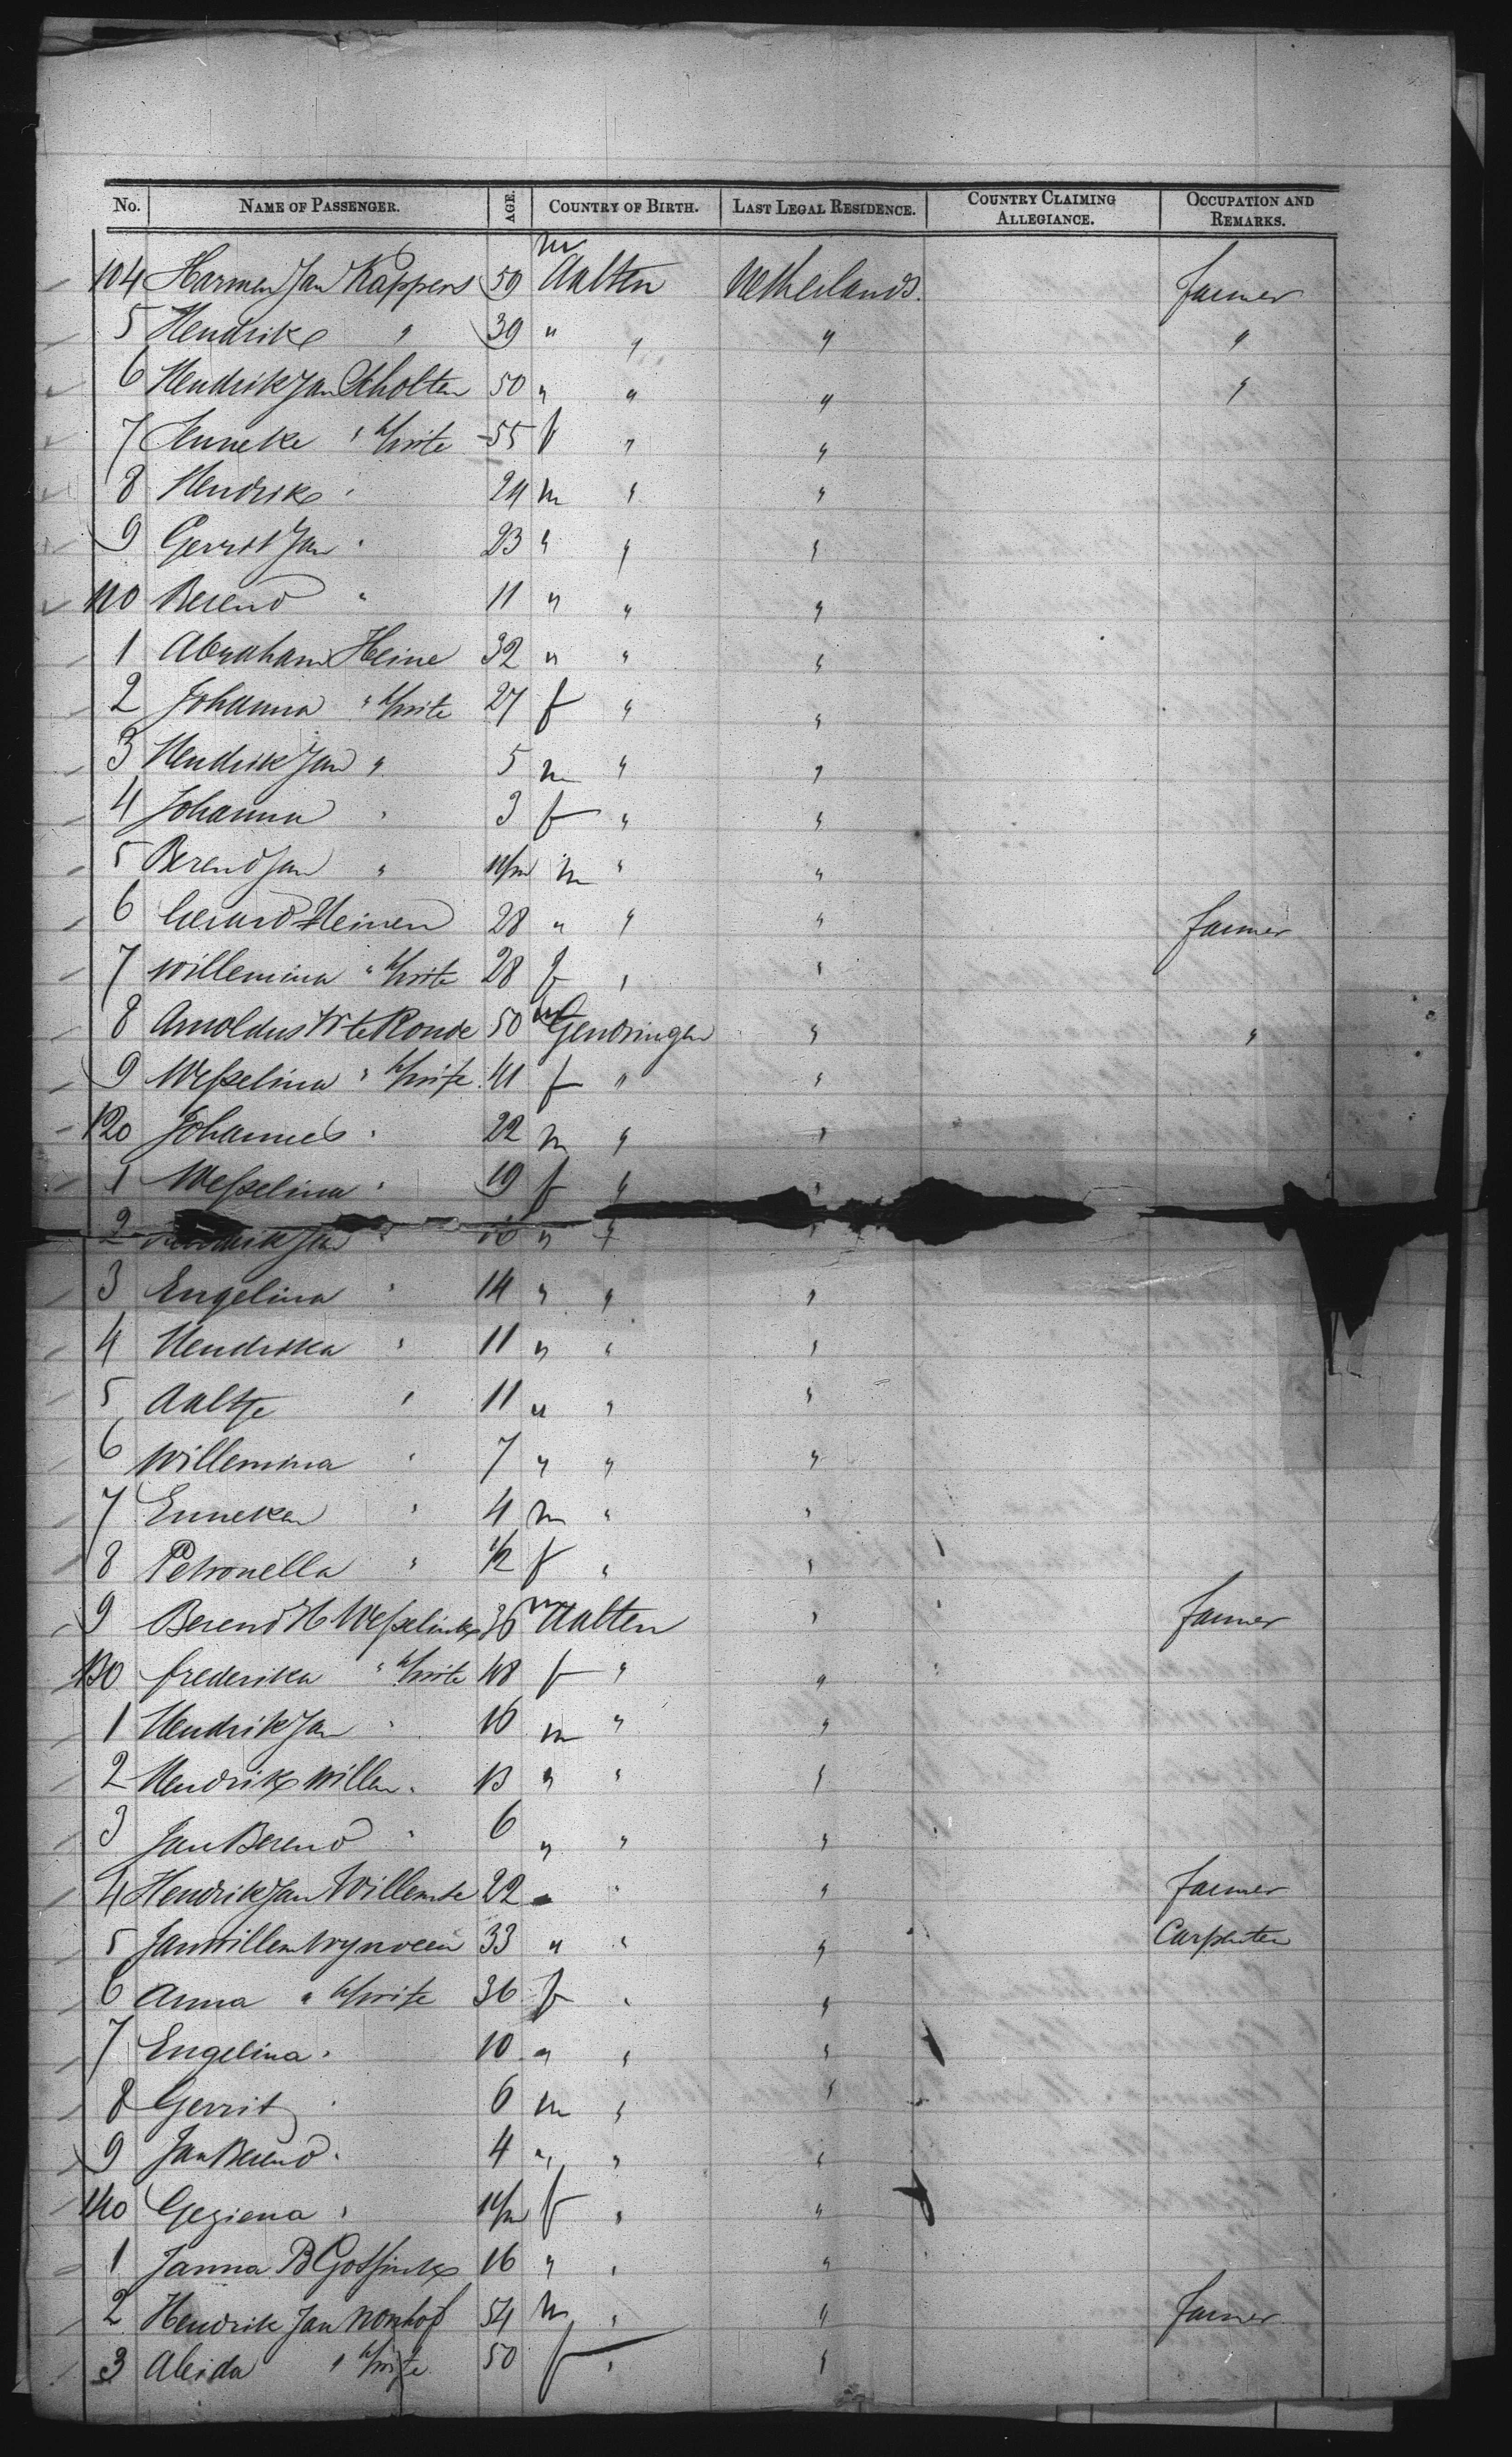 No. NAME OF PASSENGER. AGE. COUNTRY OF BIRTH. LAST LEGAL RESIDENCE. COUNTRY CLAIMING ALLEGIANCE. OCCUPATION AND REMARKS.
104 Harmen Jan Kappers 59 m Aalten Netherlands. farmer
5 Hendrik " 39 " " " "
6 Hendrik Jan Scholten 50 " " " "
7 Enneke " h/wife 55 f " "
8 Hendrik " 24 m " "
9 Gerrit Jan " 23 " " "
110 Berend " 11 " " "
1 Abraham Heine 32 " " "
2 Johanna " h/wife 27 f " "
3 Hendrik Jan " 5 m " "
4 Johanna " 3 f " "
5 Berend Jan " 11/m m " "
6 Gerard Heinen 28 " " " farmer
7 Willemina " h/wife 28 f " "
8 Arnoldus W te Ronde 50 m Gendringen " "
9 Wesselina " h/wife 41 f " "
120 Johannes " 22 m " "
1 Wesselina " 19 f " "
2 Jan " " "
3 Engelina " 14 " " "
4 Hendrika " 11 " " "
5 Aaltje " 11 " " "
6 Willemina " 7 " " "
7 Enneken " 4 m " "
8 Petronella " 1/2 f " "
9 Berend H Wesselink 36 m Aalten " farmer
130 frederika " h/wife 48 f " "
1 Hendrik Jan " 16 m " "
2 Hendrik Willem " 13 " " "
3 Jan Berend " 6 " " "
4 Hendrik Jan Willemse 22 " " " farmer
5 Jan Willem Wynveen 33 " " " Carpenter
6 Anna " h/wife 36 f " "
7 Engelina " 10 " " "
8 Gerrit " 6 m " "
9 Jan Berend " 4 " " "
140 Geziena " 11/m f " "
1 Janna B Gossink 16 " " "
2 Hendrik Jan Nonhof 54 m " " farmer
3 Aleida " h/wife 50 f " "